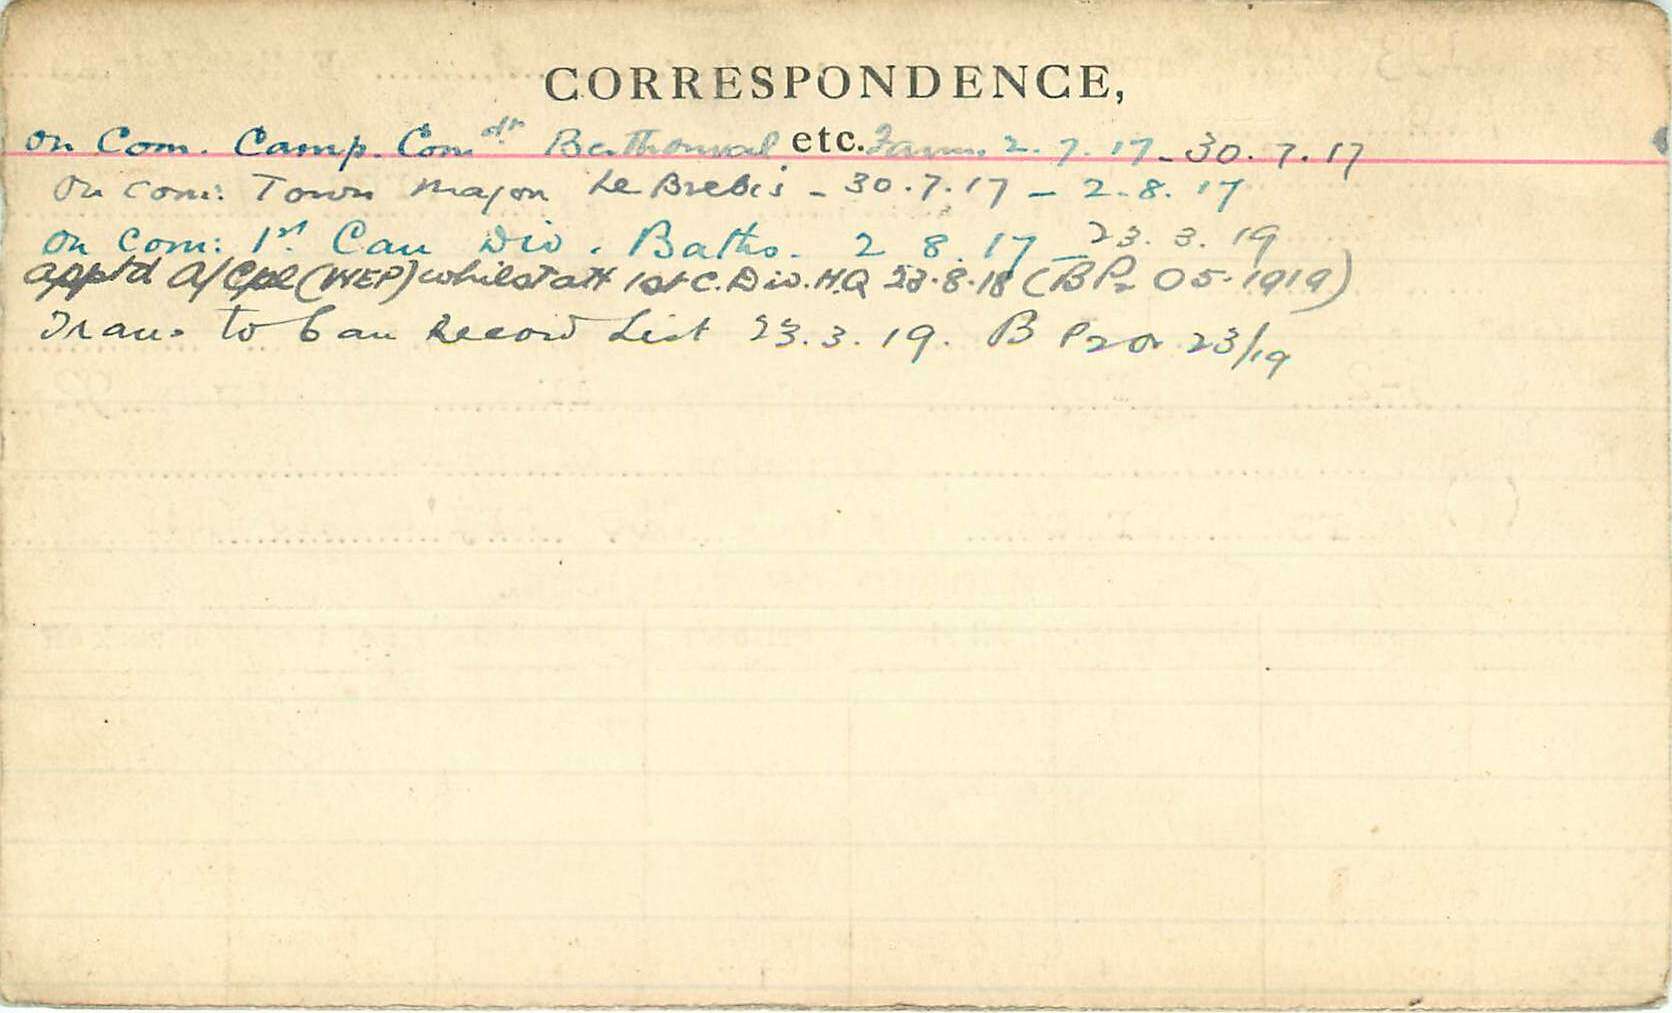 CORRESPONDENCE,
etc.
On Com. Camp. Comdt Berthonval Farm. 2.7.17 - 30.7.17
On Com: Town Major Le Brebis - 30.7.17 - 2.8.17
On Com: 1st Can Div. Baths. 2 8 17 - 23.3.19
apptd A/Cpl (WEP) whilst att 1st C. Div. H.Q 23.8.18 (B P2 O5-1919)
Trans to Can Record List 23.3.19. B P2 O 23/19